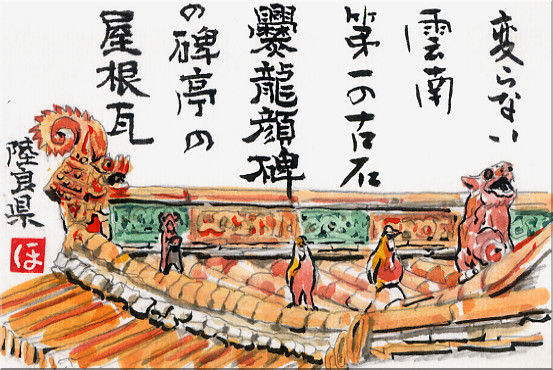 変らない
雲南
第一の古石
爨龍顔碑
の碑亭の
屋根瓦
陸良県
ほ